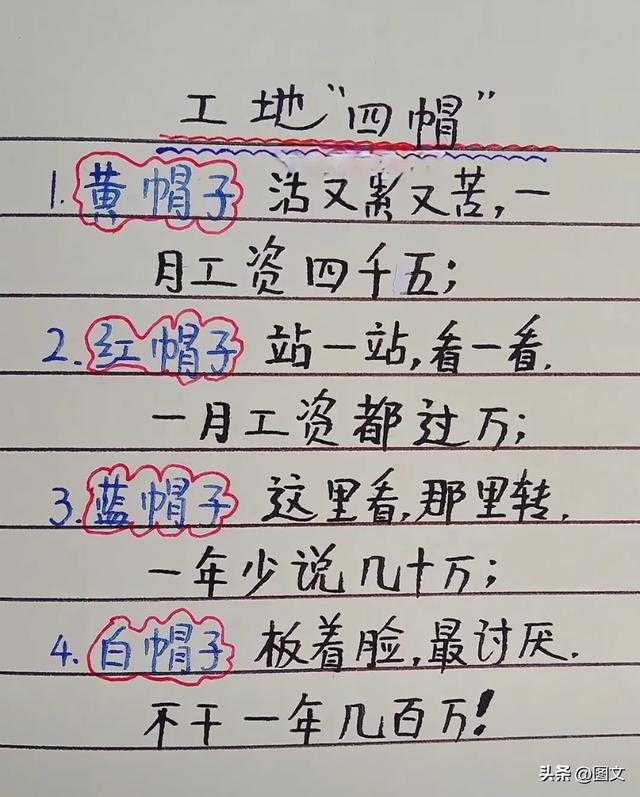 工地"四帽"
1. 黄帽子 活又累又苦,一
月工资四千五;
2. 红帽子 站一站,看一看.
一月工资都过万;
3. 蓝帽子 这里看,那里转.
一年少说几十万;
4. 白帽子 板着脸,最讨厌.
不干一年几百万!
头条 @图文